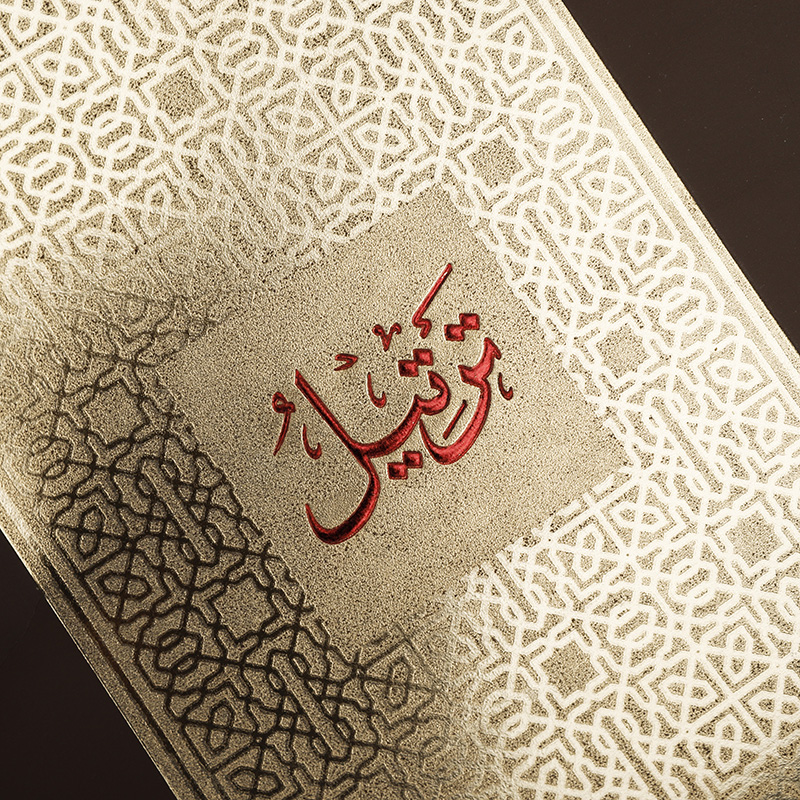 ترتيل